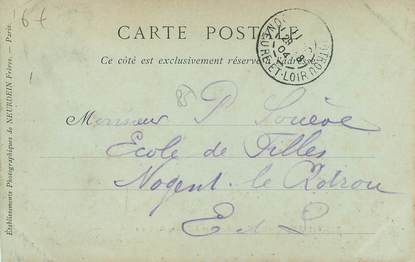 CARTE POSTALE
Ce côté est exclusivement réservé à l'adresse
Monsieur P.
Ecole de Filles
Nogent-le Rotrou
E et L
Établissements Photographiques de NEURDEIN Frères. — Paris.
EURE-ET-LOIR